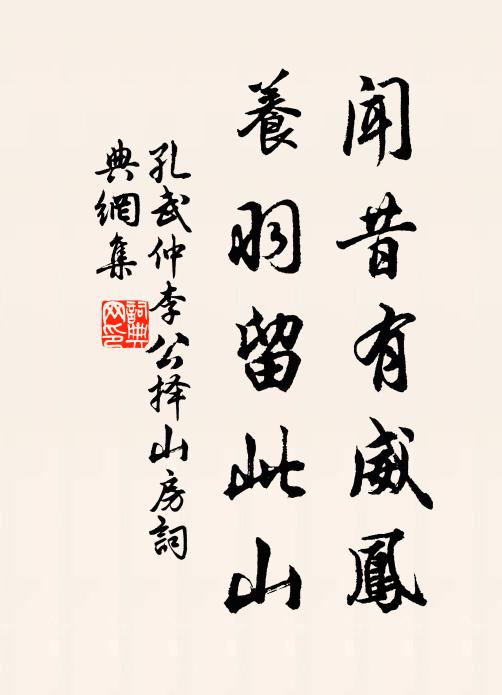 聞昔有威鳳
養羽留此山
孔武仲李公择山房詞
典網集
詞典
网印